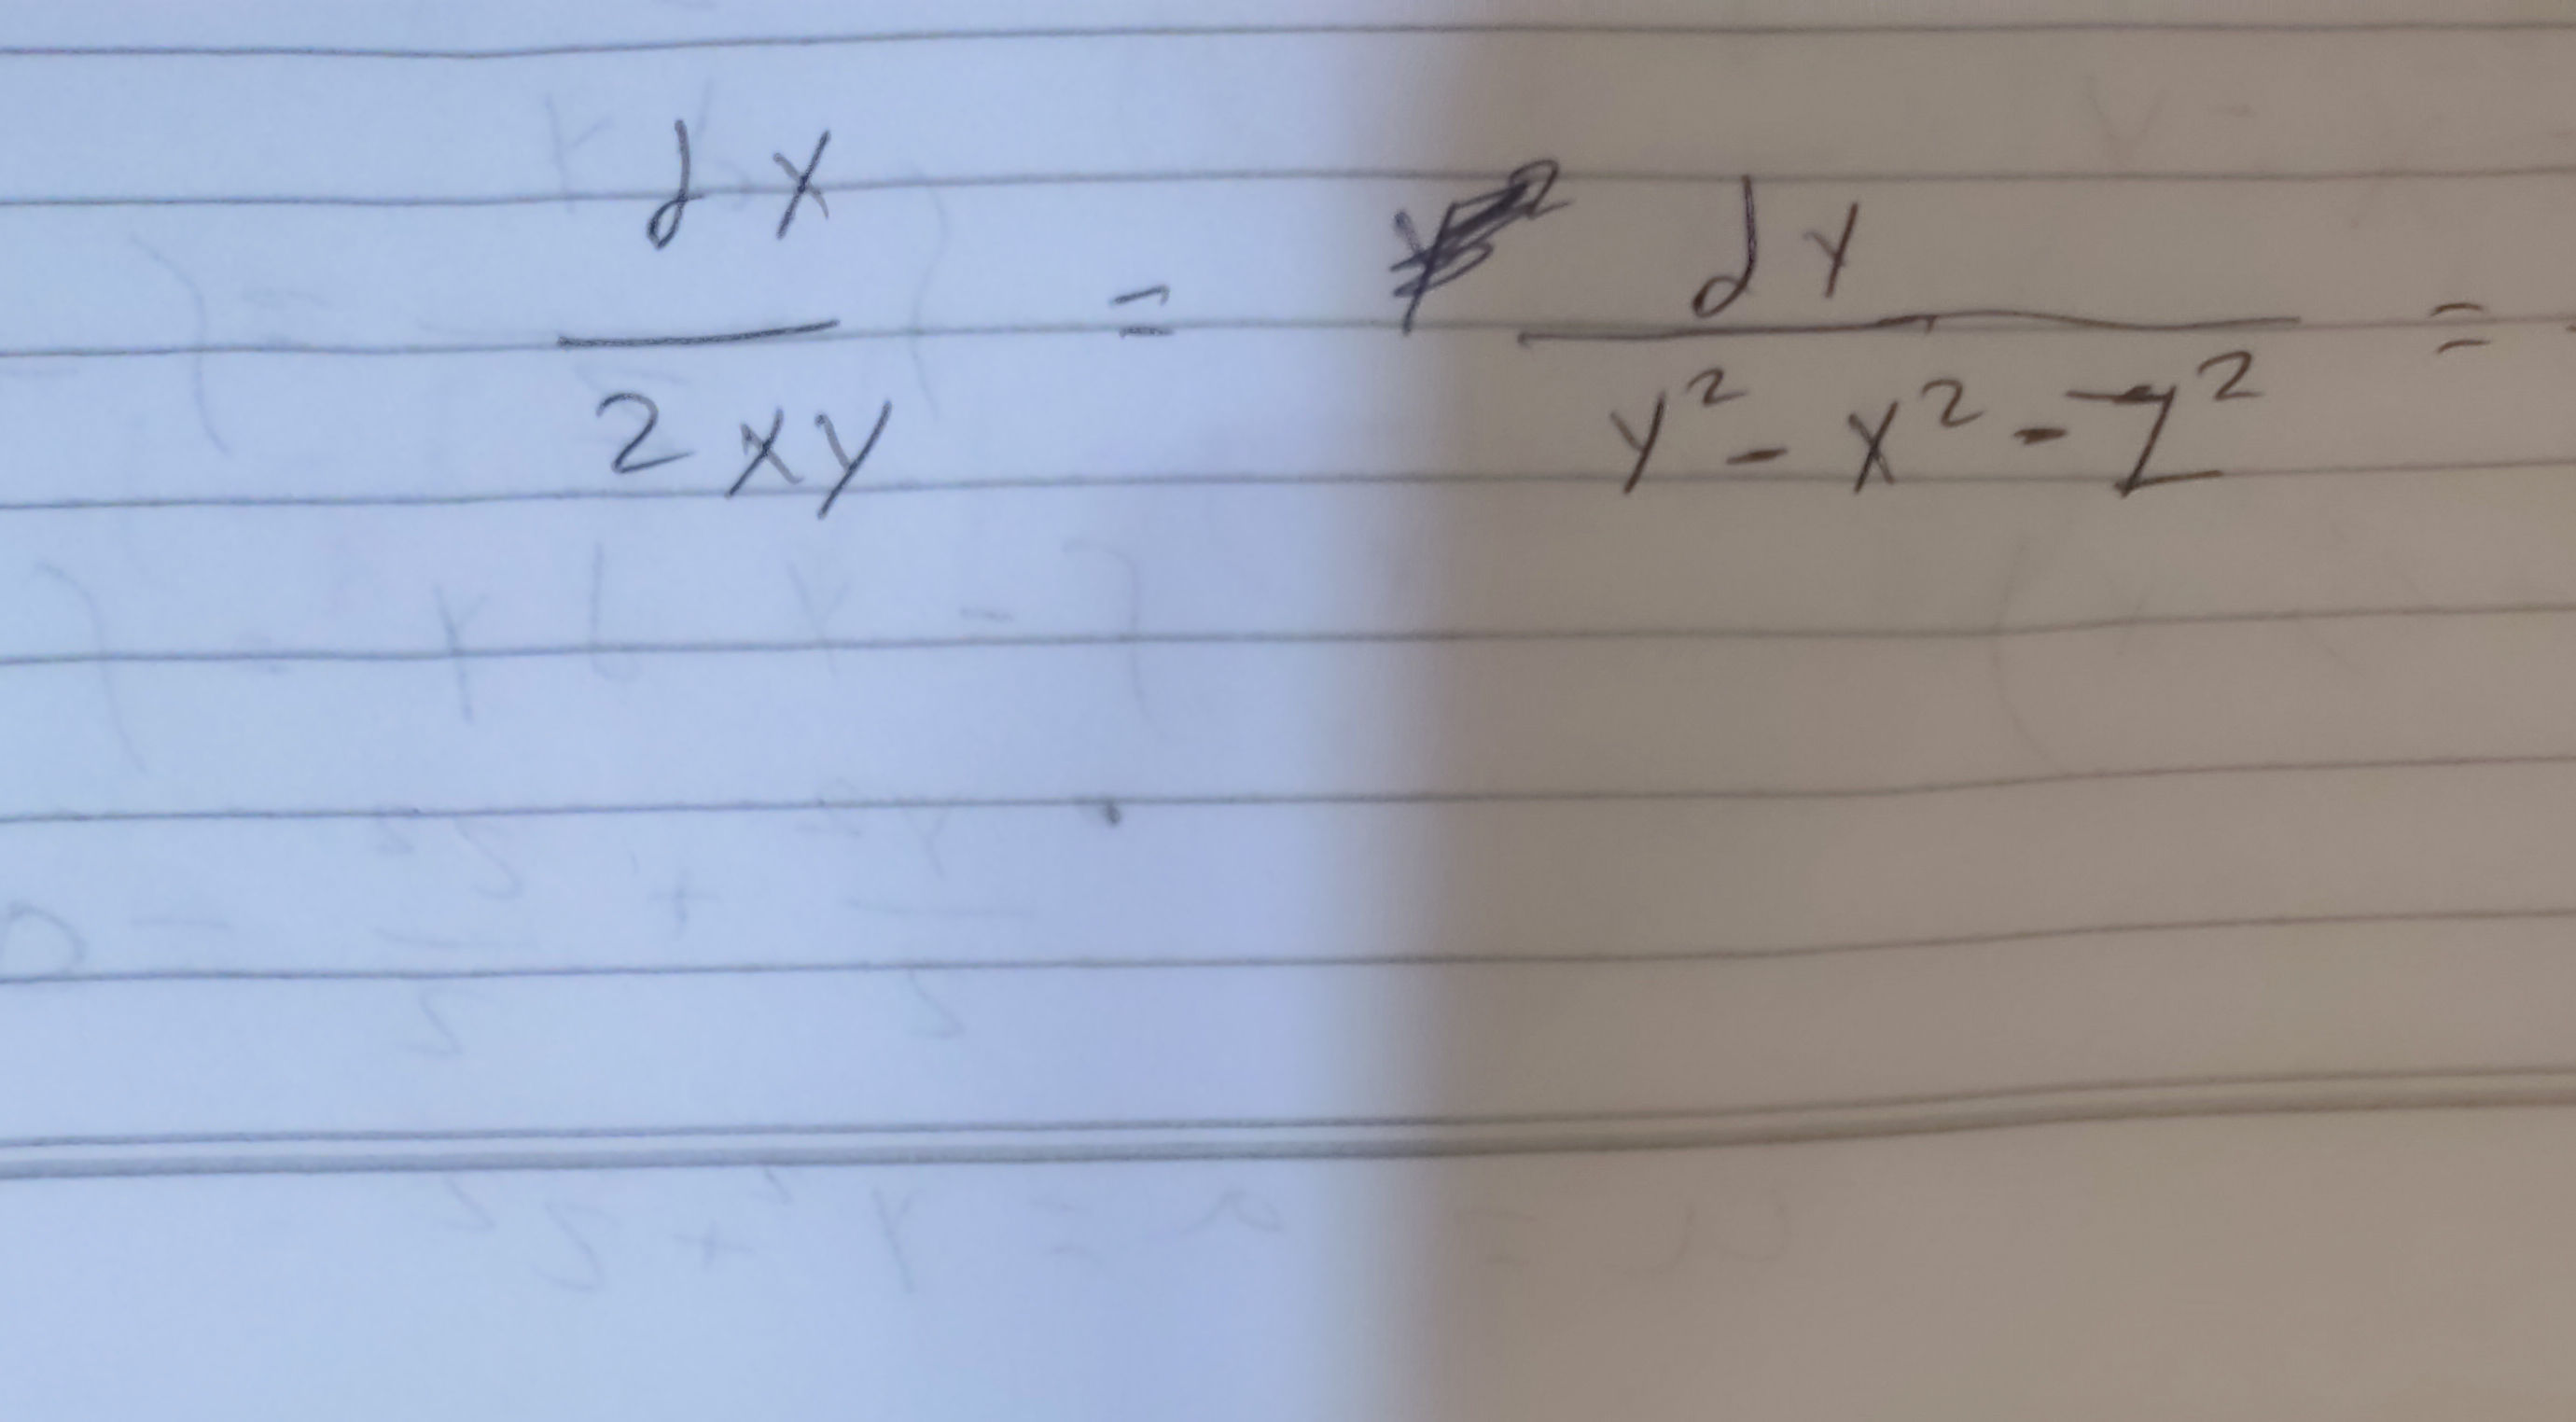 dx/2xy = dy/y² - x² - z² =